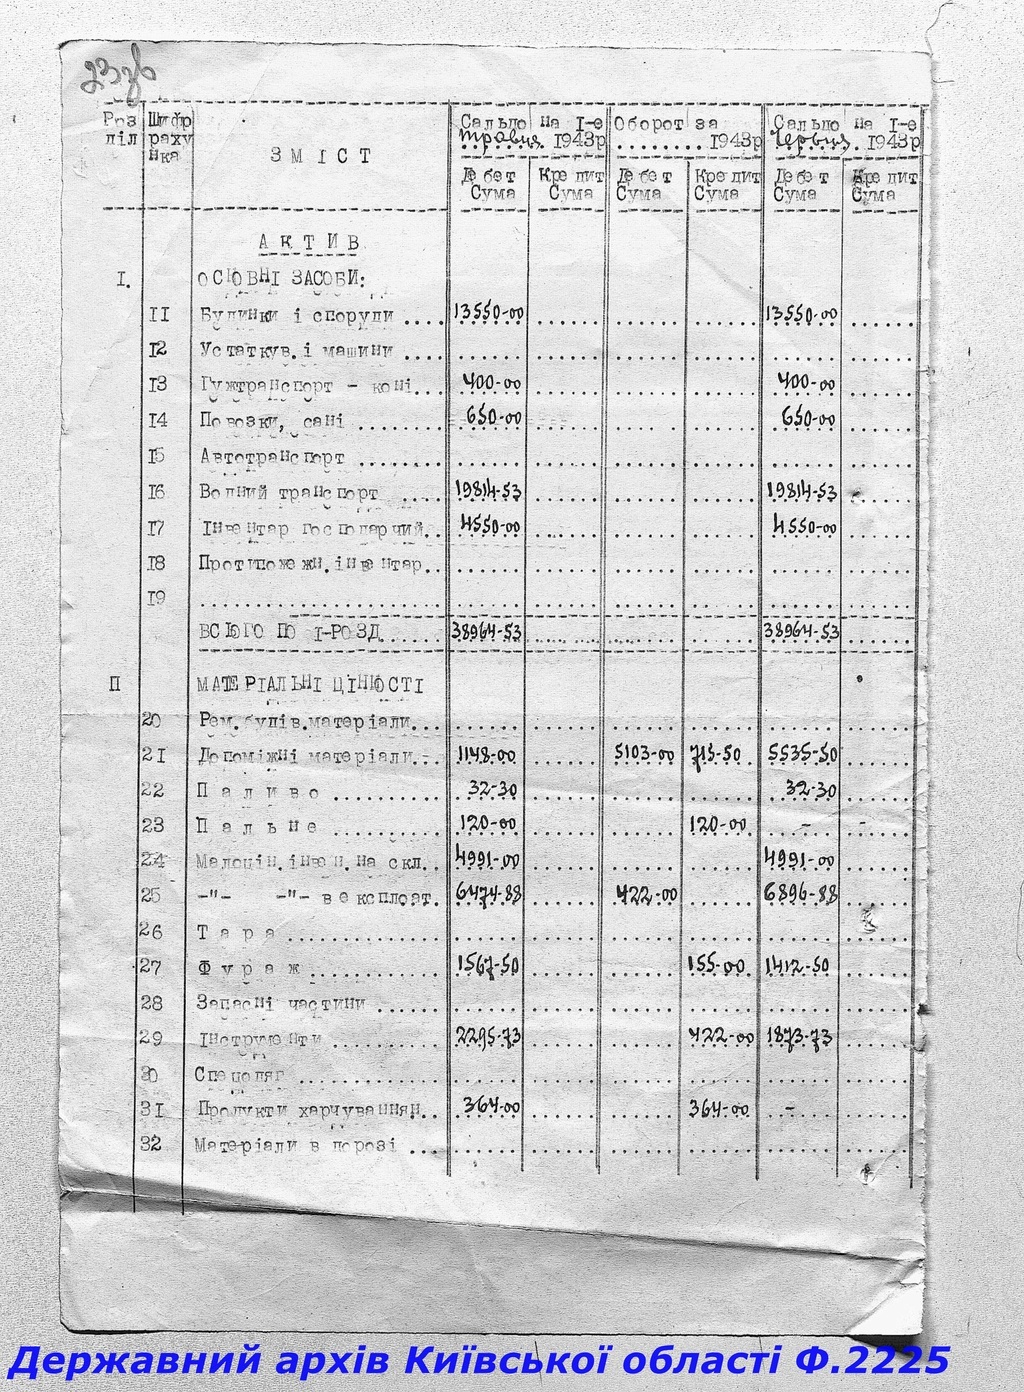 23зв
Роз діл Шифр раху нка ЗМІСТ Сальдо на І-е травня 1943р Оборот за ........ 1943р Сальдо на І-е червня. 1943р
Дебет Сума Кредит Сума Дебет Сума Кредит Сума Дебет Сума Кредит Сума
АКТИВ
І. ОСНОВНІ ЗАСОБИ:
ІІ Будинки і споруди .... 13550-00 13550-00
І2 Устаткув.і машини ....
І3 Гужтранспорт - коні... 400-00 400-00
І4 Повозки, сані ........ 650-00 650-00
І5 Автотранспорт ........
І6 Водний транспорт .... 19814-53 19814-53
І7 Інвентар господарчий.. 4550-00 4550-00
І8 Протипожежн.інвентар..
І9 ......................
ВСЬОГО ПО І-РОЗД...... 38964-53 38964-53
П МАТЕРІАЛЬНІ ЦІННОСТІ
20 Рем.будів.матеріали...
2І Допоміжні матеріали... 1148-00 5103-00 715-50 5535-50
22 Паливо .......... 32-30 32-30
23 Пальне .......... 120-00 120-00 - -
24 Малоцін.інвен.на скл.. 4991-00 4991-00
25 -"- -"- в експлоат. 6474-88 422-00 6896-88
26 Тара..............
27 Фураж ............ 1567-50 155-00 1412-50
28 Запасні частини ......
29 Інструменти .......... 2295-73 422-00 1873-73
30 Спецодяг .............
3І Продукти харчуваннян.. 364-00 364-00 -
32 Матеріали в дорозі ...
Державний архів Київської області Ф.2225